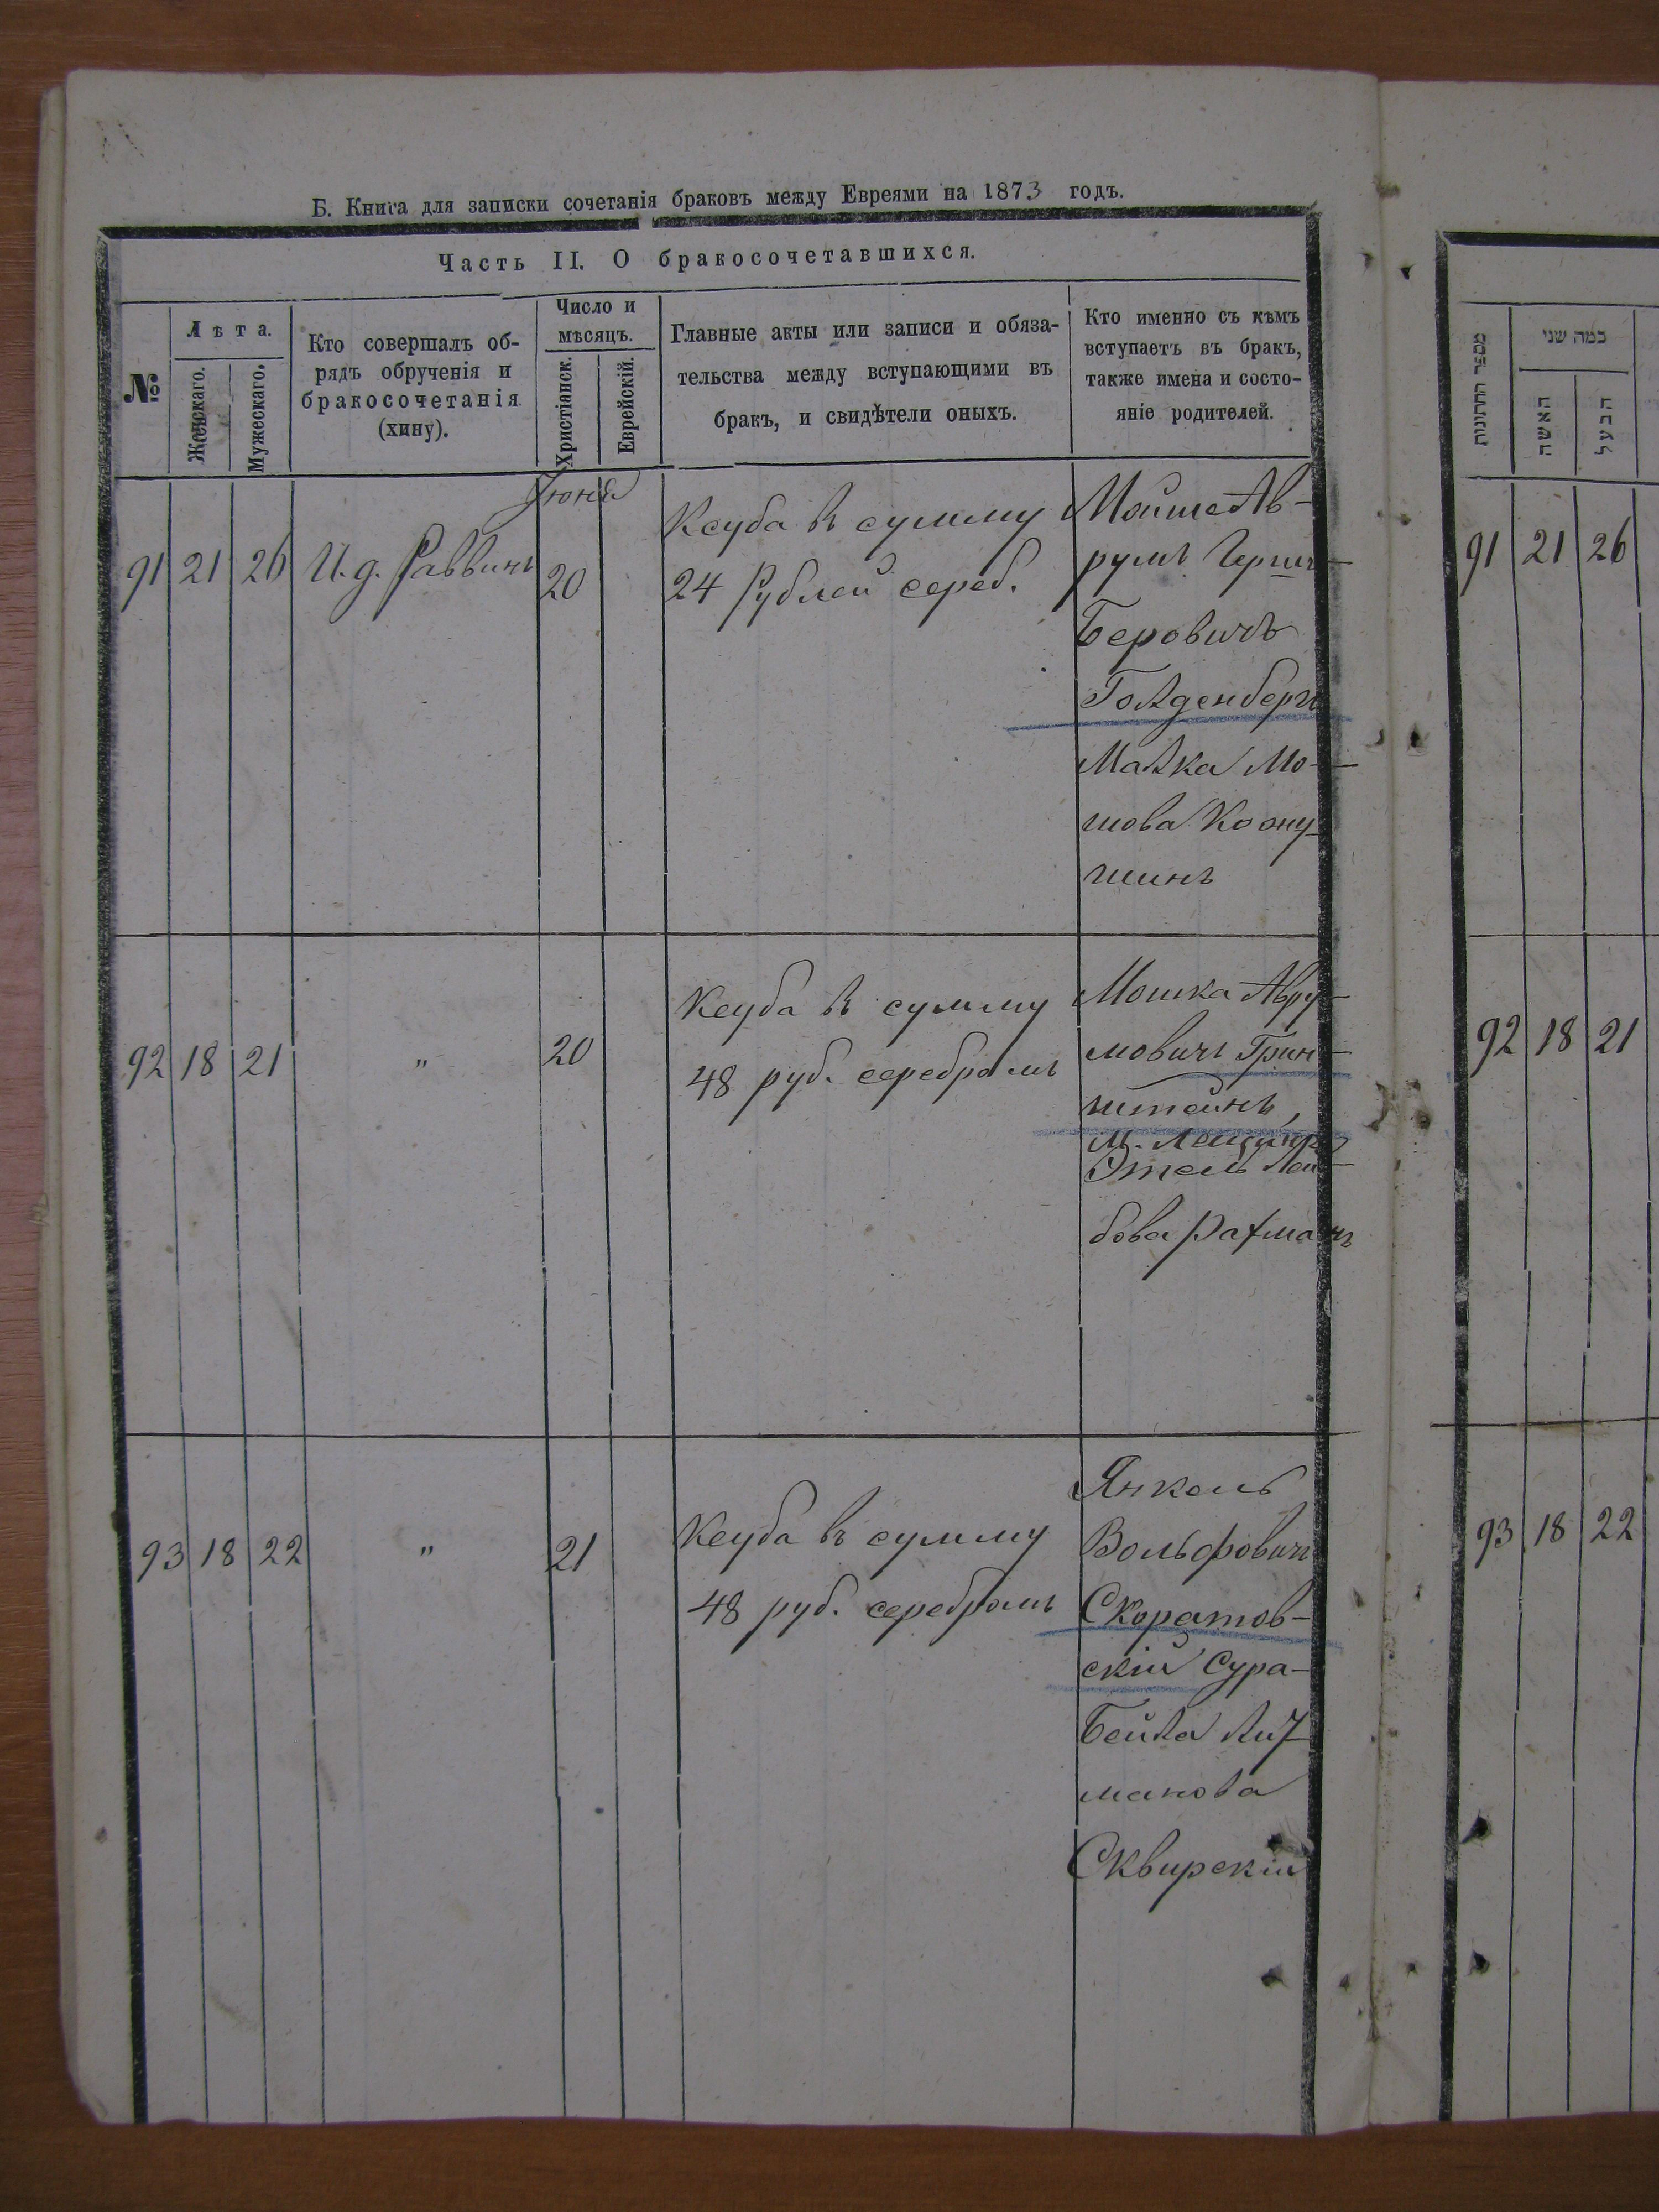 Б. Книга для записки сочетанія браковъ между Евреями на 1873 годъ.
Часть II. О бракосочетавшихся.
№
Лѣта.
Женскаго.
Мужескаго.
Кто совершалъ об-
рядъ обрученія и
бракосочетанія
(хину).
Число и
мѣсяцъ.
Христіанск.
Еврейскій.
Главные акты или записи и обяза-
тельства между вступающими въ
бракъ, и свидѣтели оныхъ.
Кто именно съ кѣмъ
вступаетъ въ бракъ,
также имена и состо-
яніе родителей.
מספר החתונות
כמה שני
האשה
הבעל
Іюня
91 21 26 И. д. Раввинъ 20
Ксуба въ сумму
24 Рублей сереб.
Мойше Ав-
румъ Герш-
Беровичъ
Голденбергъ
Малка Мо-
шова
шинъ
91 21 26
92 18 21 „ 20
Ксуба въ сумму
48 руб. серебромъ
Мошка Авру-
мовичъ Грин-
штейнъ,
Этель Лей-
бова Рахманъ
92 18 21
93 18 22 „ 21
Ксуба въ сумму
48 руб. серебромъ
Янкель
Вольфовичъ
Скоратов-
скій Сура-
Бейла Лиз-
манова
Сквирскій
93 18 22